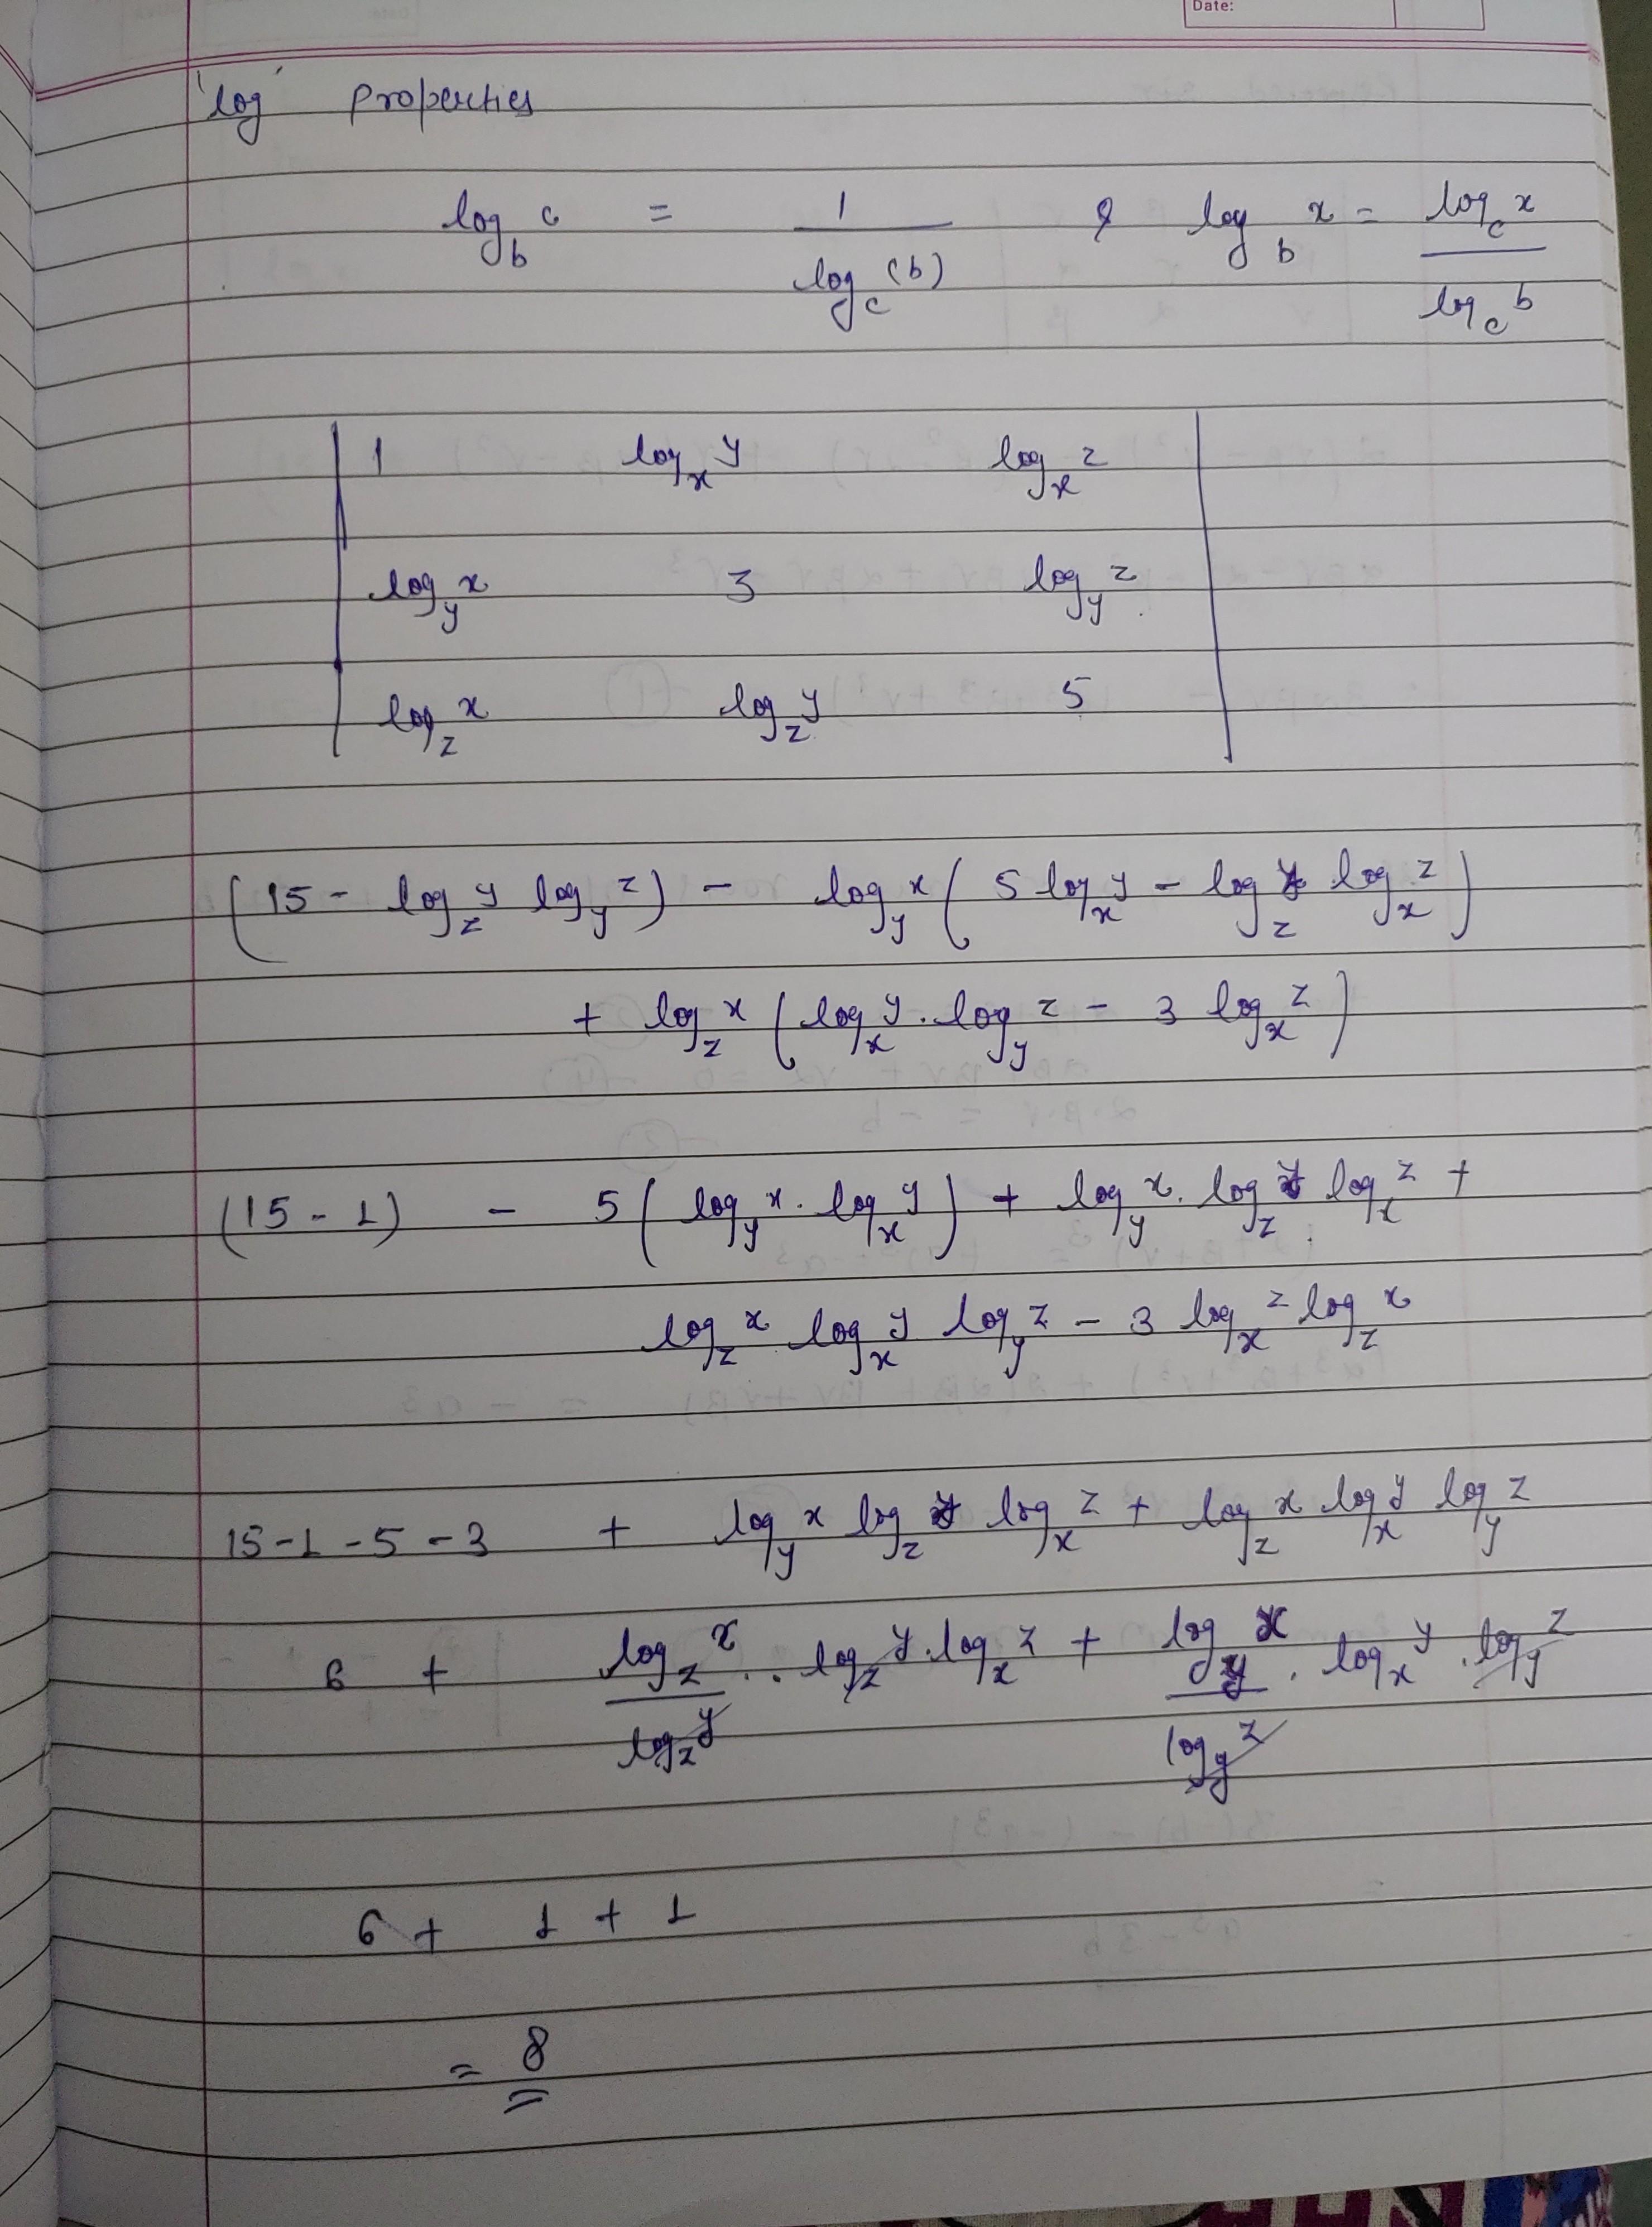 Date:
'log' properties
log_b c = 1 / log_c (b) & log_b x = log_c x / log_c b
| 1 log_x y log_x z |
| log_y x 3 log_y z |
| log_z x log_z y 5 |
(15 - log_z y log_y z) - log_y x (5 log_x y - log_z y log_x z)
+ log_z x (log_x y . log_y z - 3 log_x z)
(15 - 1) - 5 (log_y x . log_x y) + log_y x . log_z y log_x z +
log_z x log_x y log_y z - 3 log_x z log_z x
15 - 1 - 5 - 3 + log_y x log_z y log_x z + log_z x log_x y log_y z
6 + log_z x / log_z y . . log_z y . log_x z + log_y x / log_y z . log_x y . log_y z
6 + 1 + 1
= 8